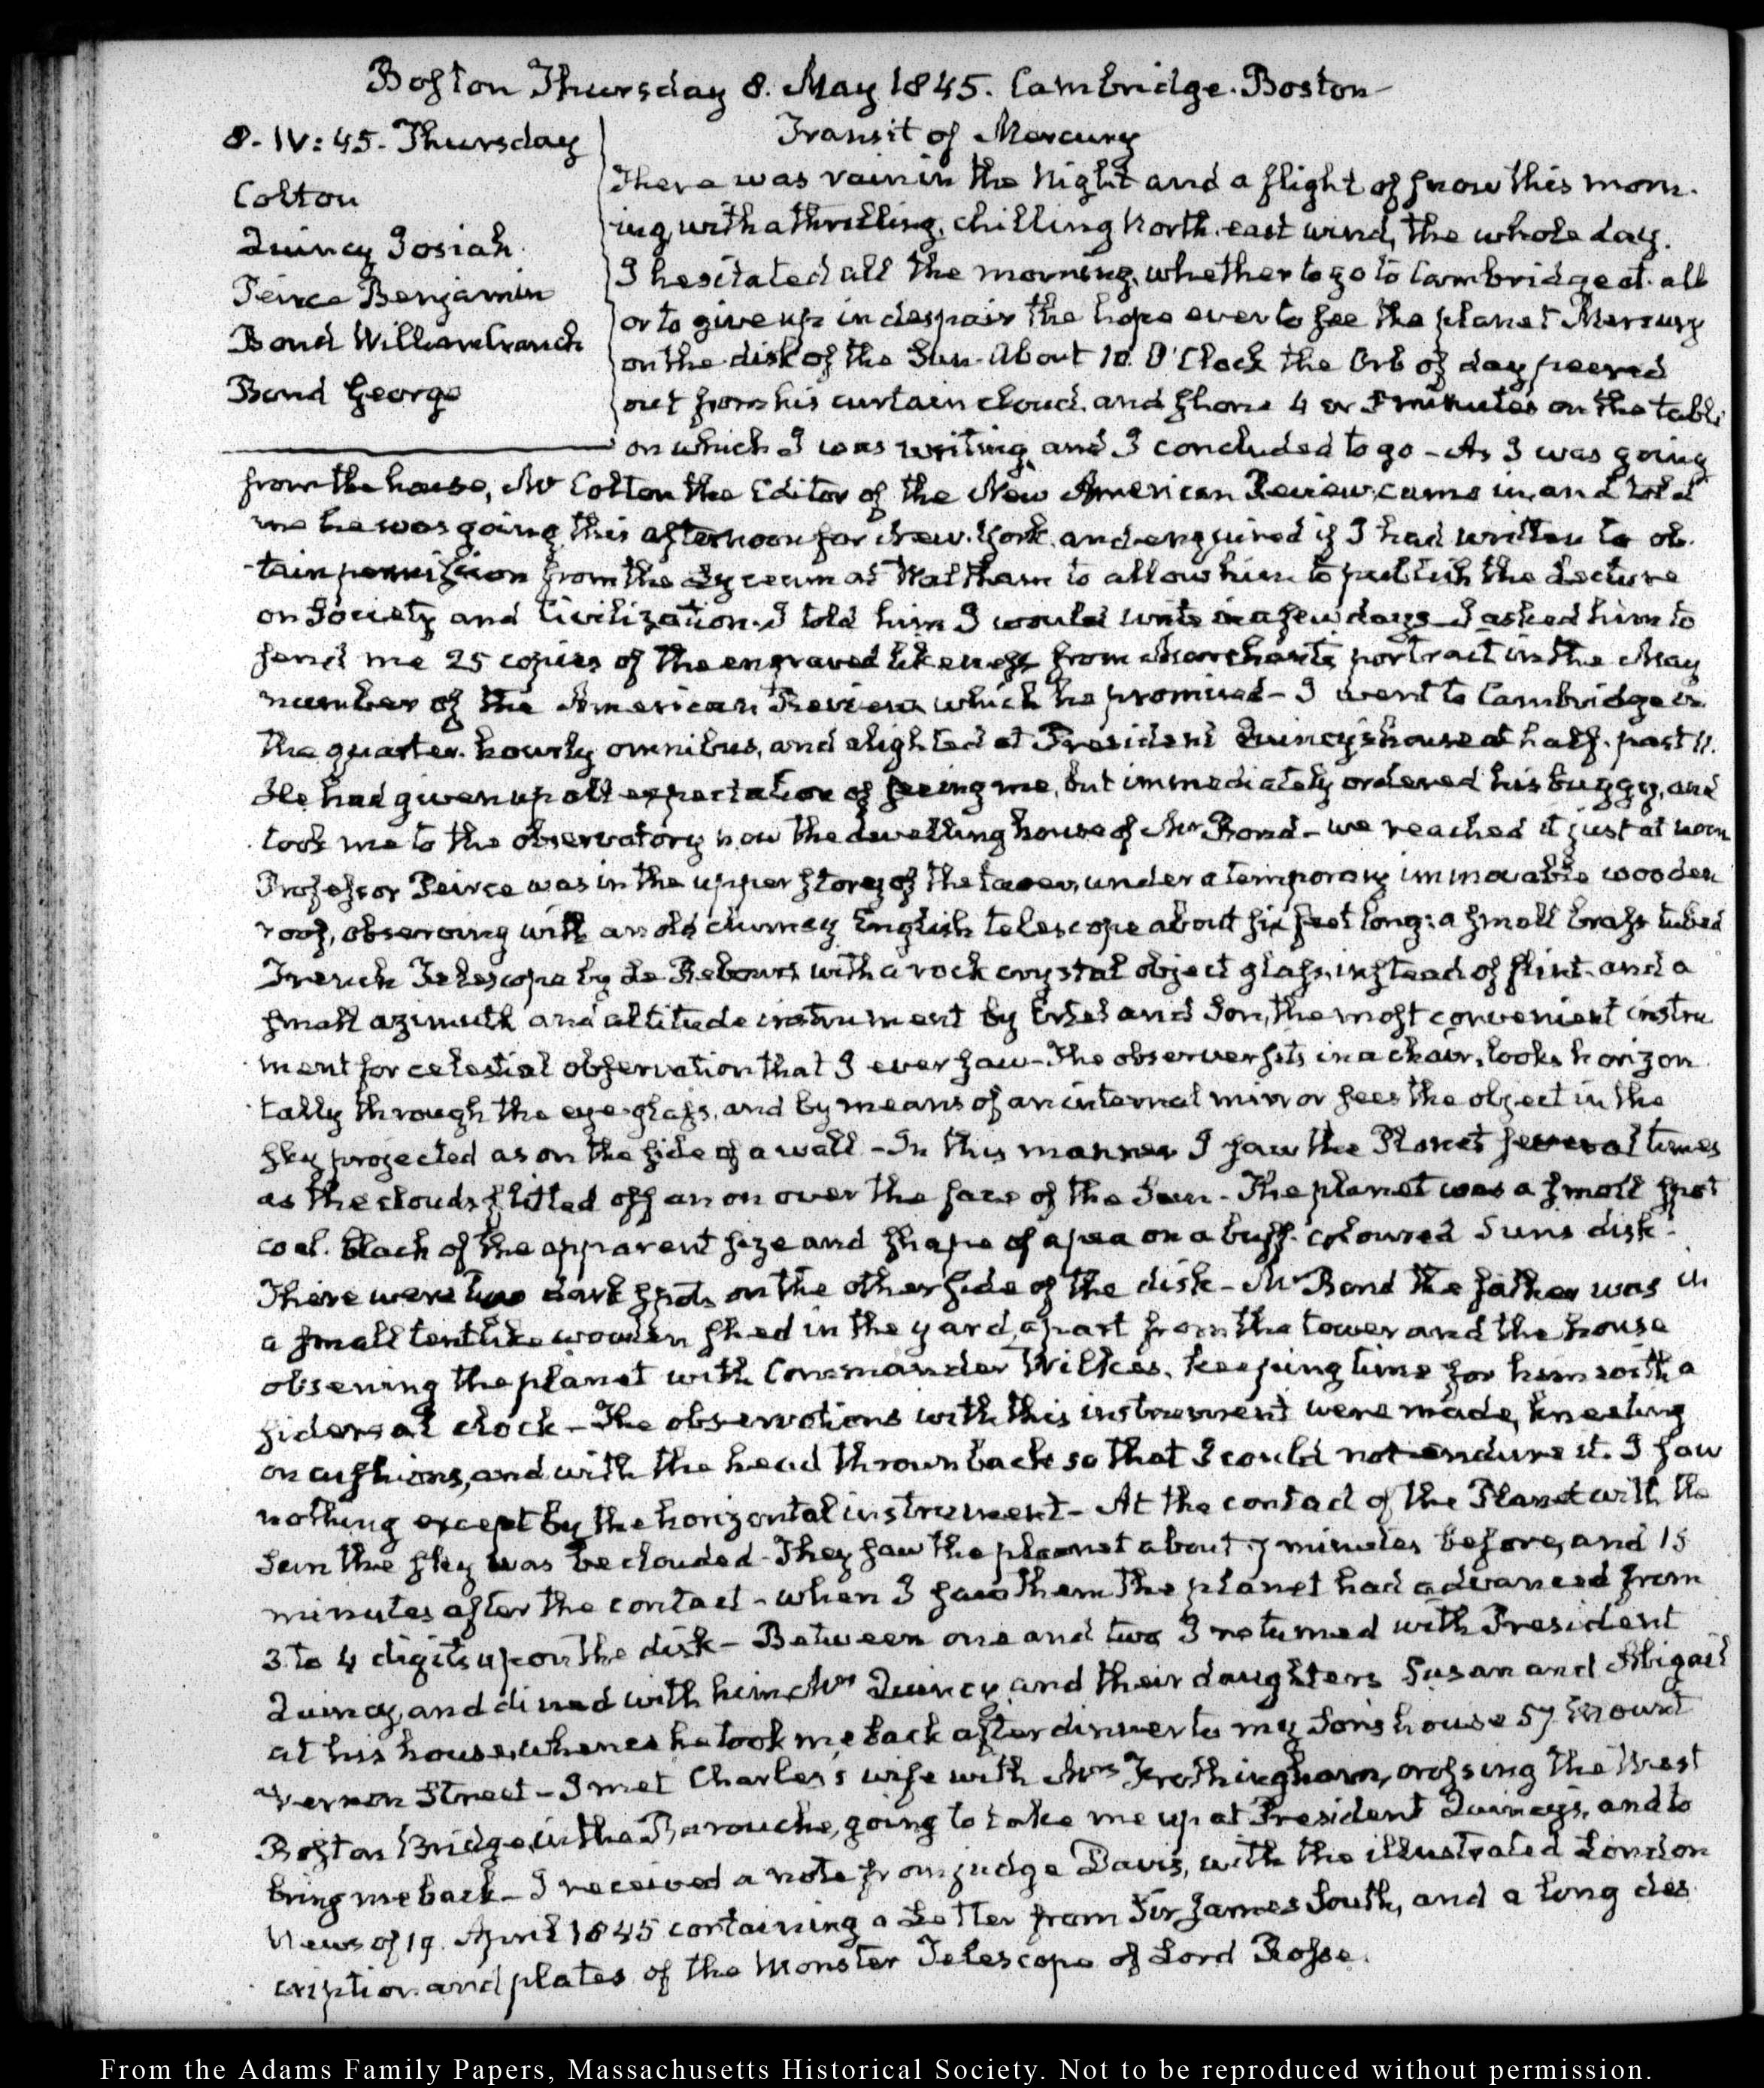 Boston Thursday 8. May 1845. Cambridge. Boston
8. IV: 45. Thursday
Colton
Quincy Josiah.
Peirce Benjamin
Bond William Cranch
Bond George
Transit of Mercury
There was rain in the Night and a flight of snow this morn.
ing, with a thrilling, chilling North. east wind, the whole day.
I hesitated all the morning, whether to go to Cambridge at. all
or to give up in despair the hope ever to see the planet Mercury
on the disk of the Sun. About 10. O'Clock the Orb of day peered
out from his curtain cloud, and shone 4 or 5 minutes on the table
on which I was writing, and I concluded to go - As I was going
from the house, Mr Colton the Editor of the New American Review, came in, and told
me he was going this afternoon for New. York, and enquired if I had written to ob.
tain permission from the Lyceum at Waltham to allow him to publish the Lecture
on Society and Civilization. I told him I would write in a few days - I asked him to
send me 25 copies of the engraved likeness from Marchant's portrait in the May
number of the American Review, which he promised - I went to Cambridge in
the quarter. hourly omnibus, and alighted at President Quincy's house at half. past 11.
He had given up all expectation of seeing me, but immediately ordered his buggy, and
took me to the observatory now the dwelling house of Mr Bond - we reached it just at noon
Professor Peirce was in the upper storey of the tower, under a temporary immovable wooden
roof, observing with an old clumsy English telescope about six feet long: a small brass tubed
French Telescope by Le Rebours with a rock crystal object glass, instead of flint. and a
small azimuth and altitude instrument by Ertel and Son, the most convenient instru
ment for celestial observation that I ever saw - The observer sits in a chair, looks horizon
tally through the eye-glass, and by means of an internal mirror sees the object in the
sky projected as on the side of a wall - In this manner I saw the Planet several times
as the clouds flitted off an on over the face of the Sun - The planet was a small spot
coal. black of the apparent size and shape of a pea on a buff. coloured Suns disk -
There were two dark spots on the other side of the disk - Mr Bond the father was in
a small tentlike wooden shed in the yard, apart from the tower and the house
observing the planet with Commander Wilkes, keeping time for him with a
sidereal clock - The observations with this instrument were made, kneeling
on cushions, and with the head thrown back so that I could not endure it. I saw
nothing except by the horizontal instrument - At the contact of the Planet with the
Sun the sky was beclouded - They saw the planet about 7 minutes before, and 15
minutes after the contact - when I saw them the planet had advanced from
3 to 4 digits upon the disk - Between one and two I returned with President
Quincy, and dined with him, Mrs Quincy, and their daughters Susan and Abigail
at his house, whence he took me back after dinner to my Son's house 57 Mount
Vernon Street - I met Charles's wife with Mrs Frothingham, crossing the West
Boston Bridge, in the Barouche, going to take me up at President Quincy's, and to
bring me back - I received a note from judge Davis, with the illustrated London
News of 19. April 1845 containing a Letter from Sir James South, and a long des
cription and plates of the Monster Telescope of Lord Rosse.
From the Adams Family Papers, Massachusetts Historical Society. Not to be reproduced without permission.